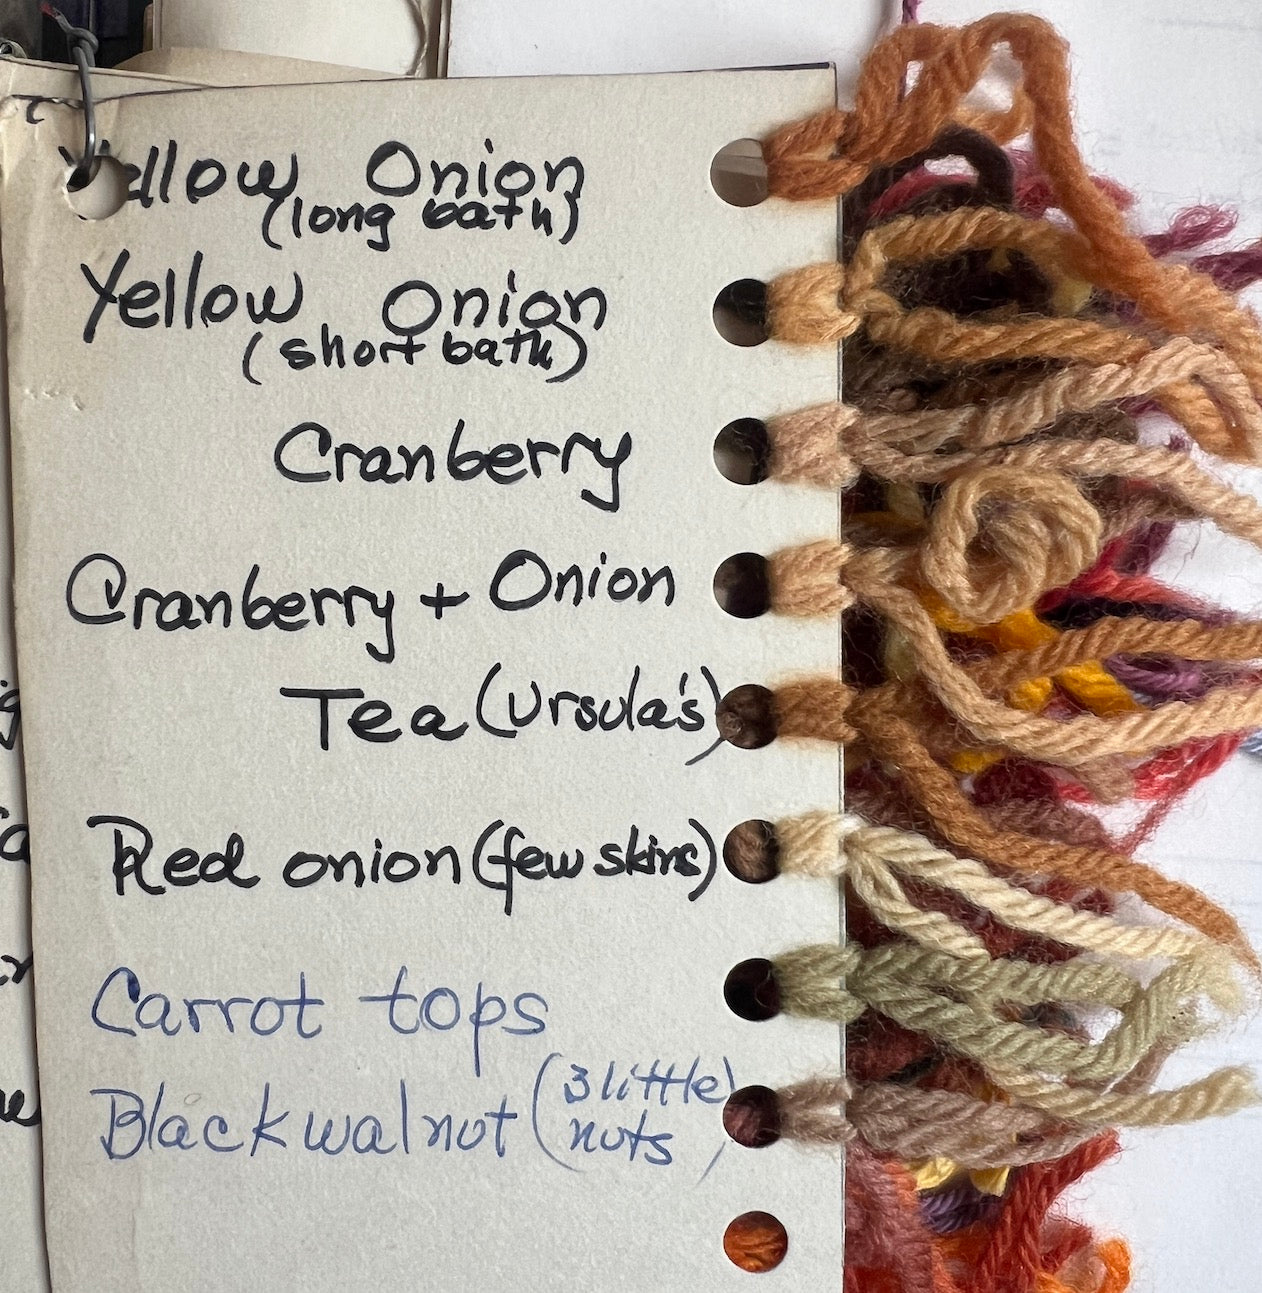 Yellow Onion
(long bath)
Yellow Onion
(short bath)
Cranberry
Cranberry + Onion
Tea (Ursula's)
Red onion (few skins)
Carrot tops
Black walnut (3 little
nuts)